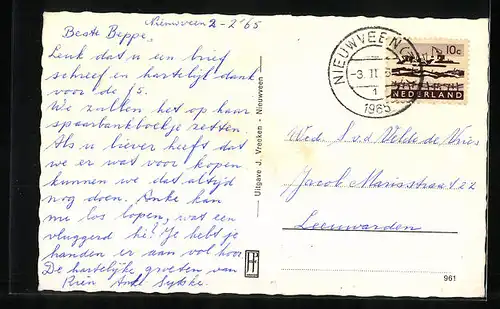 Nieuwveen 2-2'65
Beste Beppe,
Leuk dat u een brief
schreef en hartelijk dank
voor de f5.
We zullen het op haar
spaarbankboekje zetten.
Als u liever heeft dat
we er wat voor kopen
kunnen we dat altijd
nog doen. Anke kan
nu los lopen, wat een
vluggerd hè? Je hebt je
handen er aan vol hoor.
De hartelijke groeten van
Rien Anke Sytske.
Uitgave J. Vreeken - Nieuwveen
NIEUWVEEN (Z.H.)
-3.II.6
1
1965
10c
NEDERLAND
Wed. S. v.d. Velde de Vries
Jacob Marisstraat 22
Leeuwarden
961